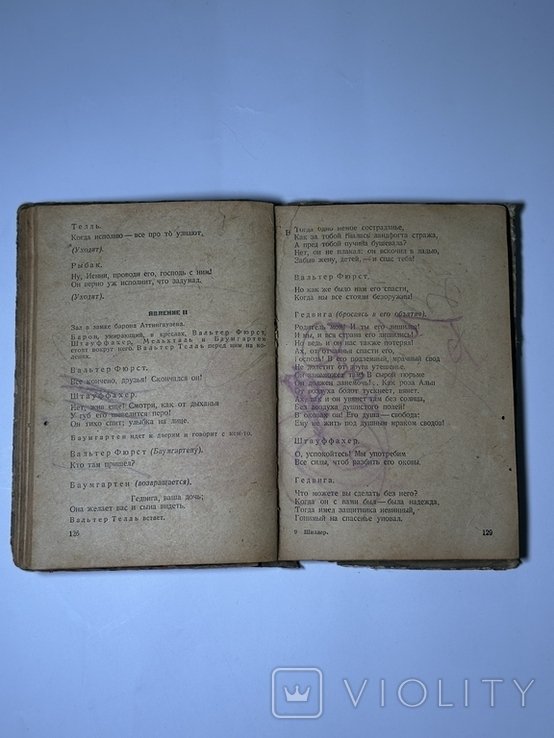 Телль.
Когда исполню — все про то узнают,
(Уходят).
Рыбак.
Ну, Иенни, проводи его, господь с ним!
Он верно уж исполнит, что задумал.
(Уходят).
ЯВЛЕНИЕ II
Зал в замке барона Аттингаузена.
Барон, умирающий, в креслах, Вальтер Фюрст,
Штауффахер, Мельхталь и Баумгартен
стоят вокруг него. Вальтер Телль перед ним на ко-
ленях.
Вальтер Фюрст.
Все кончено, друзья! Скончался он!
Штауффахер.
Нет, жив еще! Смотри, как от дыханья
У губ его шевелится перо!
Он тихо спит; улыбка на лице.
Баумгартен идет к двери и говорит с кем-то.
Вальтер Фюрст (Баумгартену).
Кто там пришел?
Баумгартен (возвращается).
Гедвига, ваша дочь;
Она желает вас и сына видеть.
Вальтер Телль встает.
Тогда одно немое состраданье,
Как за тобой гнались ландфогта стража,
А пред тобой пучина бушевала?
Нет, он не плакал: он вскочил в ладью,
Забыв жену, детей, — и спас тебя!
Вальтер Фюрст.
Но как же было нам его спасти,
Когда мы все стояли безоружны!
Гедвига (бросаясь в его объятия).
Родитель мой! И ты его лишился!
И мы, и вся страна его лишились!
Но ведь и он нас также потерял!
Ах, от отчаянья спасти его,
Господь! В его подземный, мрачный свод
Не долетит от друга утешенье.
Он должен занемочь!.. Как роза Альп
воздуха болот тускнеет, вянет.
и он увянет там без солнца,
Без воздуха душистого полей!
В оковах он! Его душа — свобода!
Ему не жить под душным мраком сводов!
Штауффахер.
О, успокойтесь! Мы употребим
Все силы, чтоб разбить его оковы.
Гедвига.
Что можете вы сделать без него?
Когда он с вами был — была надежда,
Тогда имел защитника невинный,
Гонимый на спасенье уповал.
9 Шиллер.
129
VIOLITY